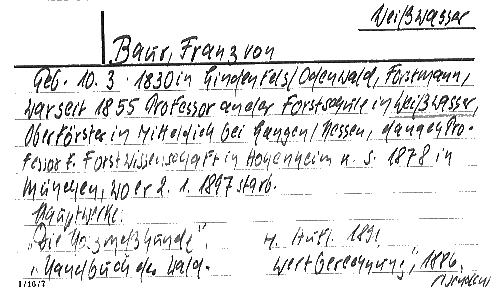 Weißwasser
Baur, Franz von
Geb. 10. 3. 1830 in Lindenfels/Odenwald, Forstmann,
war seit 1855 Professor an der Forstschule in Weißwasser,
Oberförster in Mitteldich bei Langen/Hessen, dann Pro-
fessor f. Forstwissenschaft in Hohenheim u. s. 1878 in
München, wo er 2. 1. 1897 starb.
Hauptwerke:
"Die Holzmeßkunde", 4. Aufl. 1891
"Handbuch der Wald- wertberechnung", 1886.